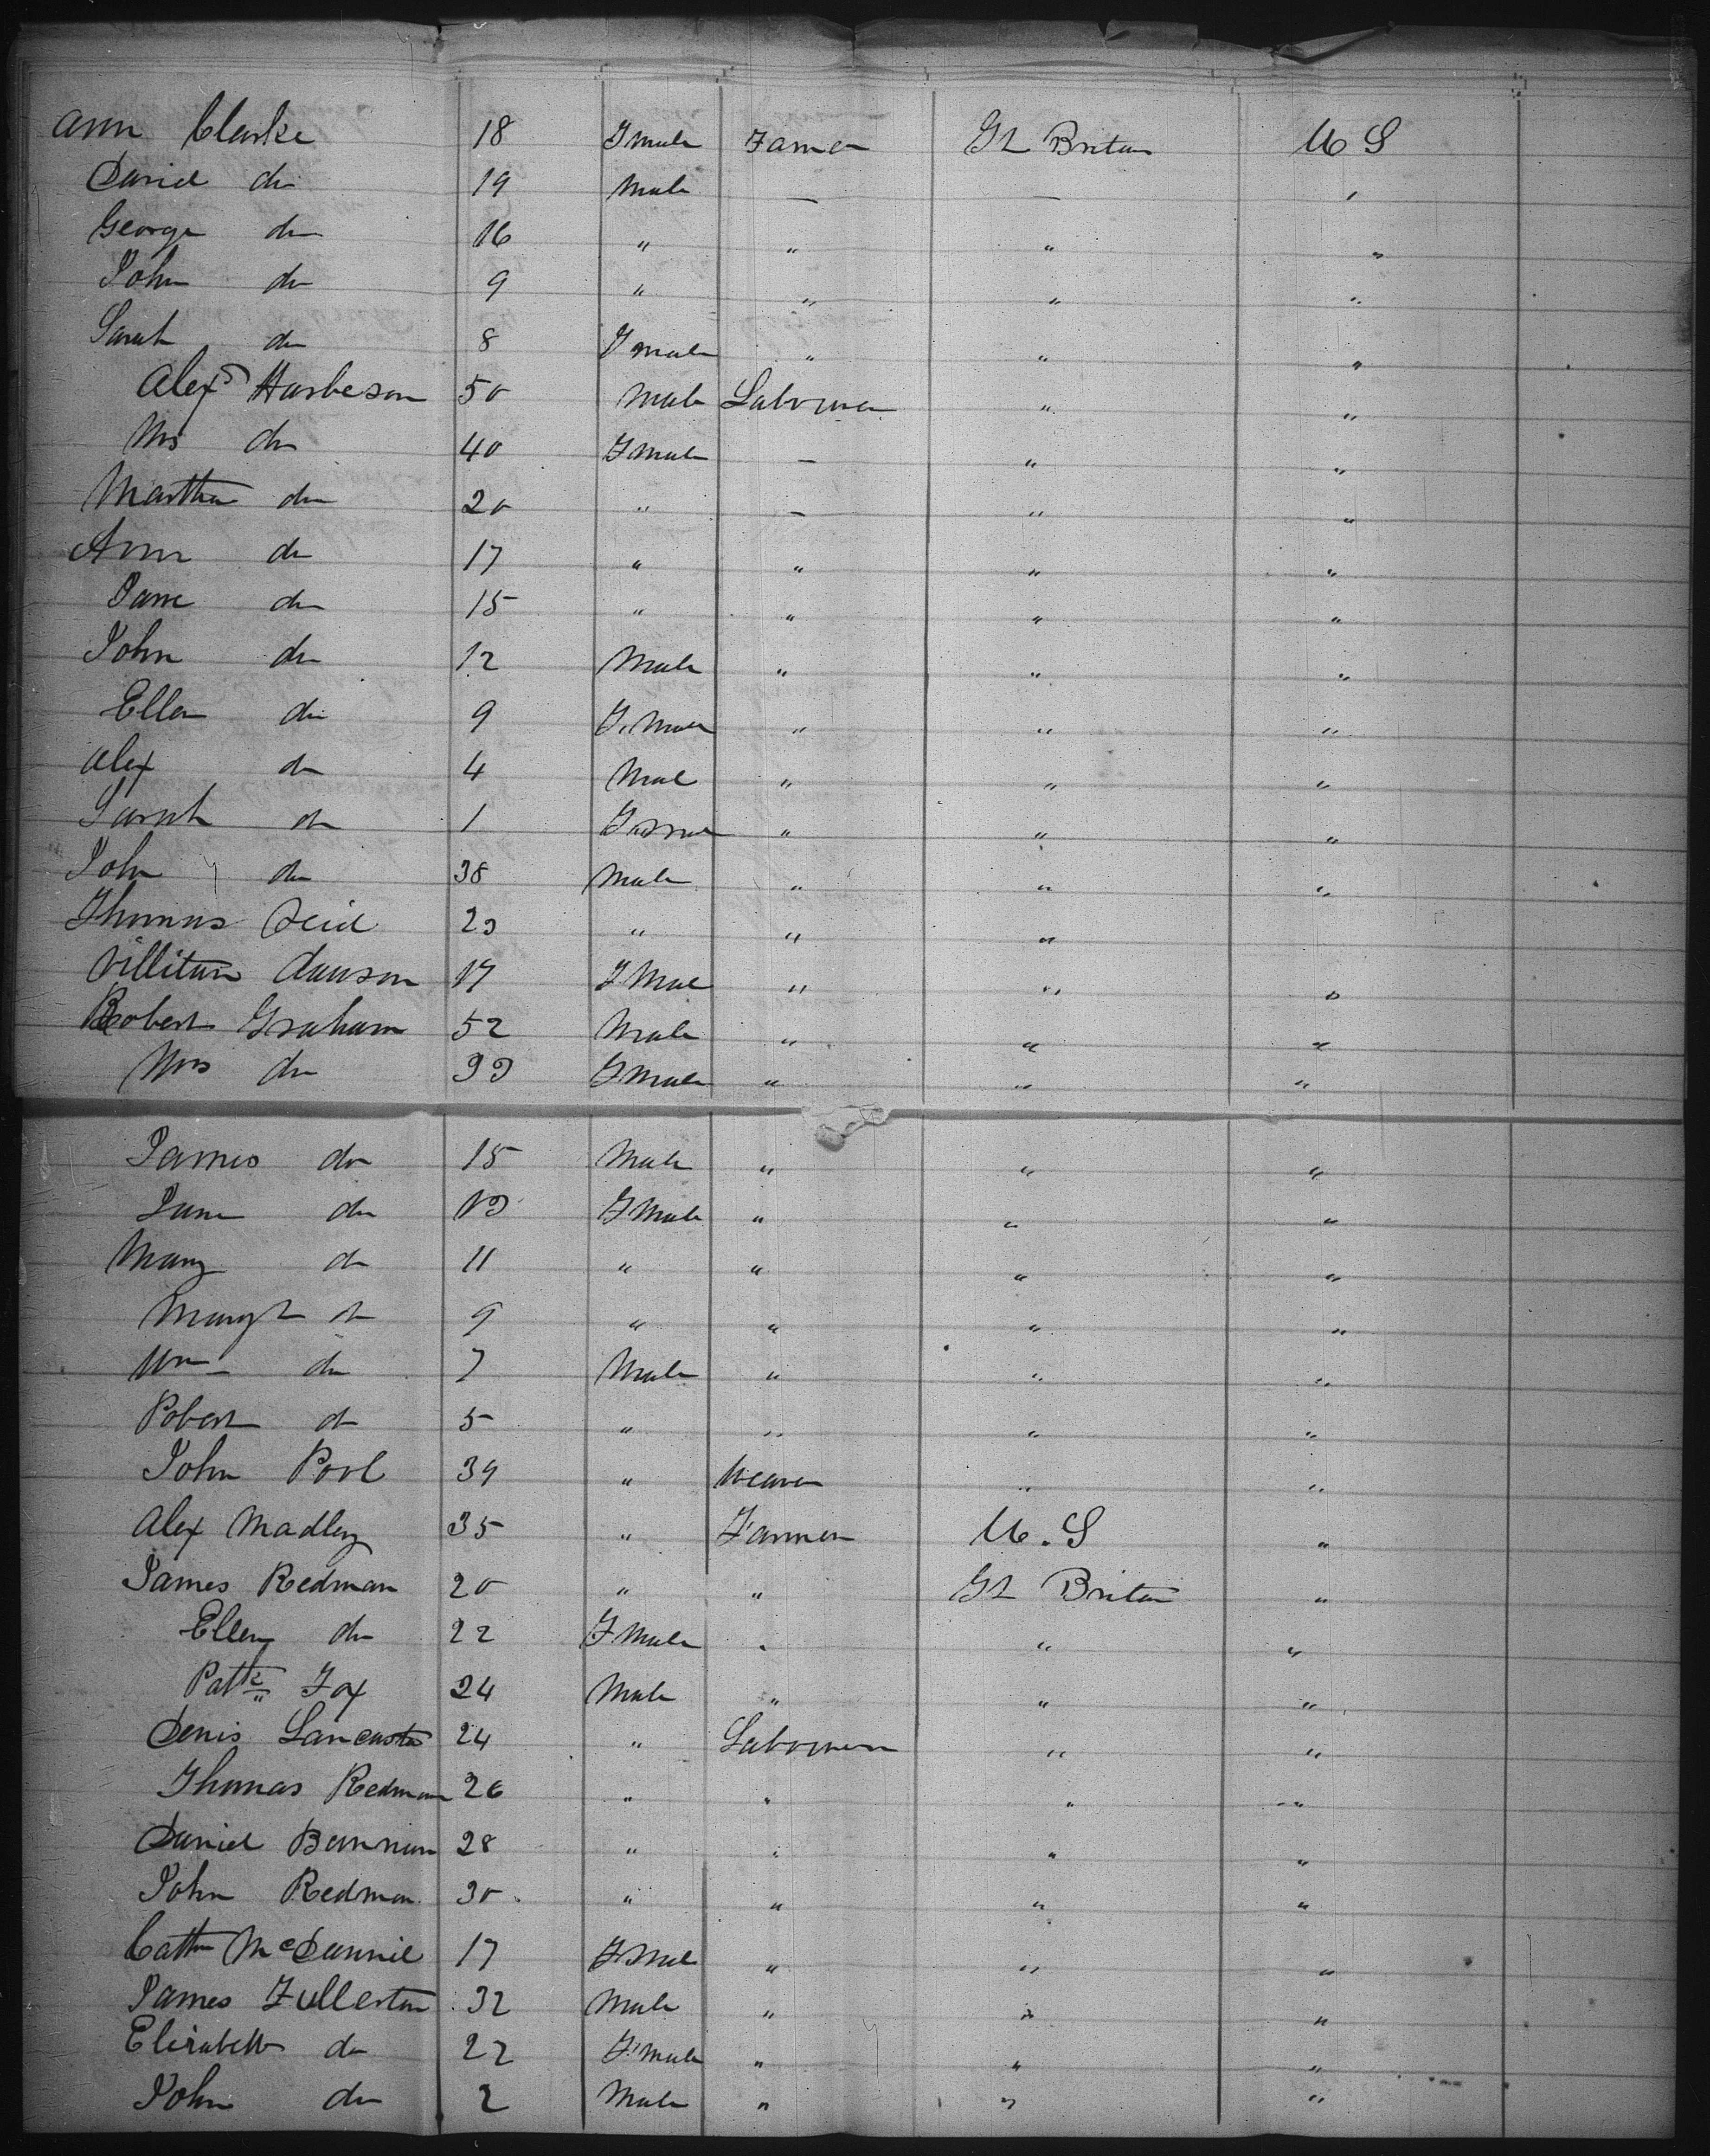 Ann Clarke 18 Fmale Farmer Gt Britan U S
David do 19 Male — — "
George do 16 " " " "
John do 9 " " " "
Sarah do 8 Fmale " " "
Alexr Harbeson 50 Male Labourer " "
Mrs do 40 Fmale — " "
Martha do 20 " — " "
Ann do 17 " " " "
Jane do 15 " " " "
John do 12 Male " " "
Ellen do 9 Fmale " " "
Alex do 4 Male " " "
Sarah do 1 Fmale " " "
John do 38 Male " " "
Thomas Reid 23 " " " "
Dawson 17 Fmale " " "
Robert Graham 52 Male " " "
Mrs do 33 Fmale " " "
James do 15 Male " " "
Jane do 13 Fmale " " "
Mary do 11 " " " "
Margt do 9 " " " "
Wm do 7 Male " " "
Robert do 5 " " " "
John Pool 39 " Weaver " "
Alex Madley 35 " Farmer U.S "
James Redman 20 " " Gt Britan "
Ellen do 22 Fmale " " "
Patk Fox 24 Male " " "
Denis Lancaster 24 " Labourer " "
Thomas Redman 26 " " " "
Daniel Bannian 28 " " " "
John Redman 30 " " " "
Cathn McDannil 17 Fmale " " "
James Fullerton 32 Male " " "
Elizabeth do 22 Fmale " " "
John do 2 Male " " "